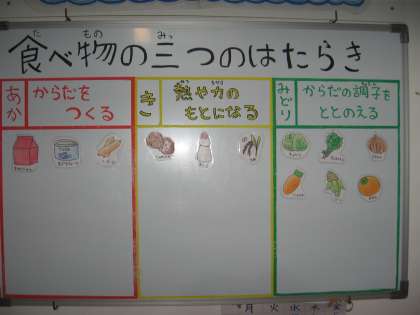 た もの みっ
食べ物の三つのはたらき
あか
からだを
つくる
き
ねつ ちから
熱や力の
もとになる
みどり
からだの調子を
ととのえる
月 火 水 木 金